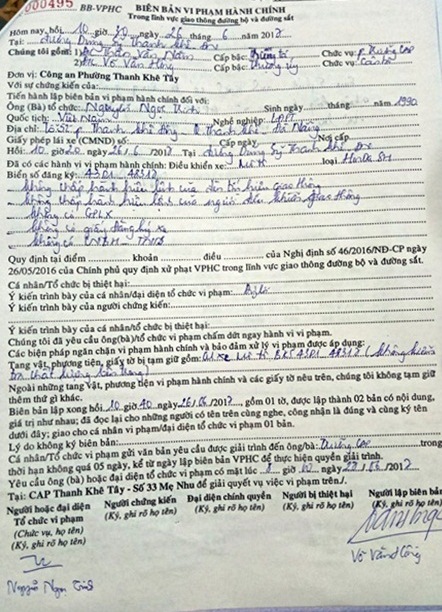 000495 BB-VPHC BIÊN BẢN VI PHẠM HÀNH CHÍNH
Trong lĩnh vực giao thông đường bộ và đường sắt
Hôm nay, hồi 10 giờ 30 ngày 26 tháng 6 năm 2017
Tại: Thanh Khê
Chúng tôi gồm: 1) Văn Nam Cấp bậc: Chức vụ:
2) Võ Văn Công Cấp bậc: Thượng úy Chức vụ: Cán bộ
Đơn vị: Công an Phường Thanh Khê Tây
Với sự chứng kiến của:
Tiến hành lập biên bản vi phạm hành chính đối với:
Ông (Bà) tổ chức: Nguyễn Ngọc Sinh ngày tháng: năm 1990
Quốc tịch: Việt Nam Nghề nghiệp: LĐPT
Địa chỉ: Thanh Khê Đông Thanh Khê - Đà Nẵng
Giấy phép lái xe (CMND) số: Cấp ngày Nơi cấp
Hồi: 10 giờ 20 ngày 26/6/2017 Tại Thanh Khê
Đã có các hành vi vi phạm hành chính: Điều khiển xe loại
Biển số đăng ký: 43D1 48312
Không chấp hành hiệu lệnh của đèn tín hiệu giao thông
Không chấp hành hiệu lệnh của người điều khiển giao thông
Không có GPLX
Không có giấy đăng ký xe
Không có
Quy định tại điểm khoản điều của Nghị định số 46/2016/NĐ-CP ngày
26/05/2016 của Chính phủ quy định xử phạt VPHC trong lĩnh vực giao thông đường bộ và đường sắt.
Cá nhân/Tổ chức bị thiệt hại:
Ý kiến trình bày của cá nhân/đại diện tổ chức vi phạm:
Ý kiến trình bày của người chứng kiến:
Ý kiến trình bày của cá nhân/tổ chức bị thiệt hại:
Chúng tôi đã yêu cầu ông(bà)/tổ chức vi phạm chấm dứt ngay hành vi vi phạm.
Các biện pháp ngăn chặn vi phạm hành chính và bảo đảm xử lý vi phạm được áp dụng:
Tang vật, phương tiện, giấy tờ bị tạm giữ gồm: 01 xe mô tô BKS 43D1 48312 (không kiểm
tra chất lượng bên trong)
Ngoài những tang vật, phương tiện vi phạm hành chính và các giấy tờ nêu trên, chúng tôi không tạm giữ
thêm thứ gì khác.
Biên bản lập xong hồi 10 giờ 40 ngày 26/06/2017, gồm 01 tờ, được lập thành 02 bản có nội dung,
giá trị như nhau; đã đọc lại cho những người có tên trên cùng nghe, công nhận là đúng và cùng ký tên
dưới đây; giao cho cá nhân vi phạm/đại diện tổ chức vi phạm 01 bản.
Lý do không ký biên bản:
Cá nhân/Tổ chức vi phạm gửi văn bản yêu cầu được giải trình đến ông/bà: trong
thời hạn không quá 05 ngày, kể từ ngày lập biên bản VPHC để thực hiện quyền giải trình.
Yêu cầu ông (bà) hoặc đại diện tổ chức vi phạm có mặt lúc 8 giờ ngày /2017
Tại: CAP Thanh Khê Tây - Số 33 Mẹ Nhu để giải quyết vụ việc vi phạm trên./.
Người hoặc đại diện Người chứng kiến Đại diện chính quyền Người bị thiệt hại Người lập biên bản
Tổ chức vi phạm (Ký, ghi rõ họ tên) (Ký, ghi rõ họ tên) (Ký, ghi rõ họ tên) (Ký, ghi rõ họ tên)
(Chức vụ, họ tên)
(Ký, ghi rõ họ tên)
Võ Văn Công
Nguyễn Ngọc